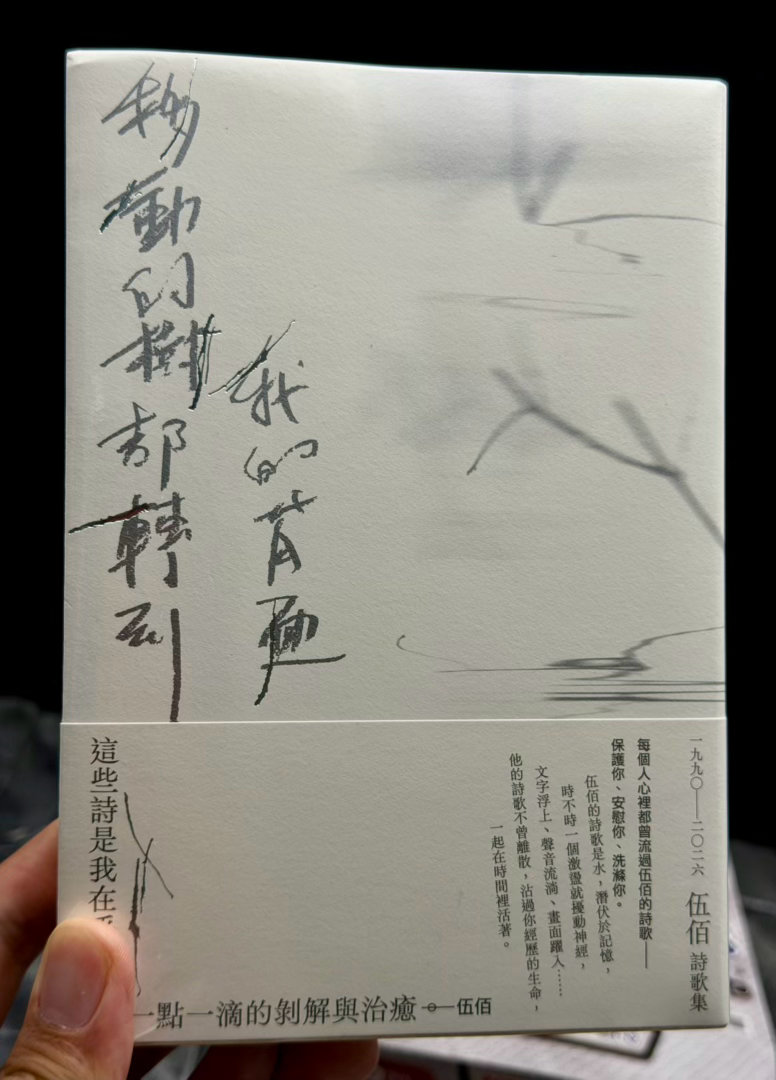 移動的樹都轉到
我的背面
一九九〇——二〇二六 伍佰 詩歌集
每個人心裡都曾流過伍佰的詩歌——
保護你、安慰你、洗滌你。
伍佰的詩歌是水，潛伏於記憶，
時不時一個激盪就擾動神經，
文字浮上、聲音流淌、畫面躍入……
他的詩歌不曾離散，沾過你經歷的生命，
一起在時間裡活著。
這些詩是我在
一點一滴的剝解與治癒 ——伍佰